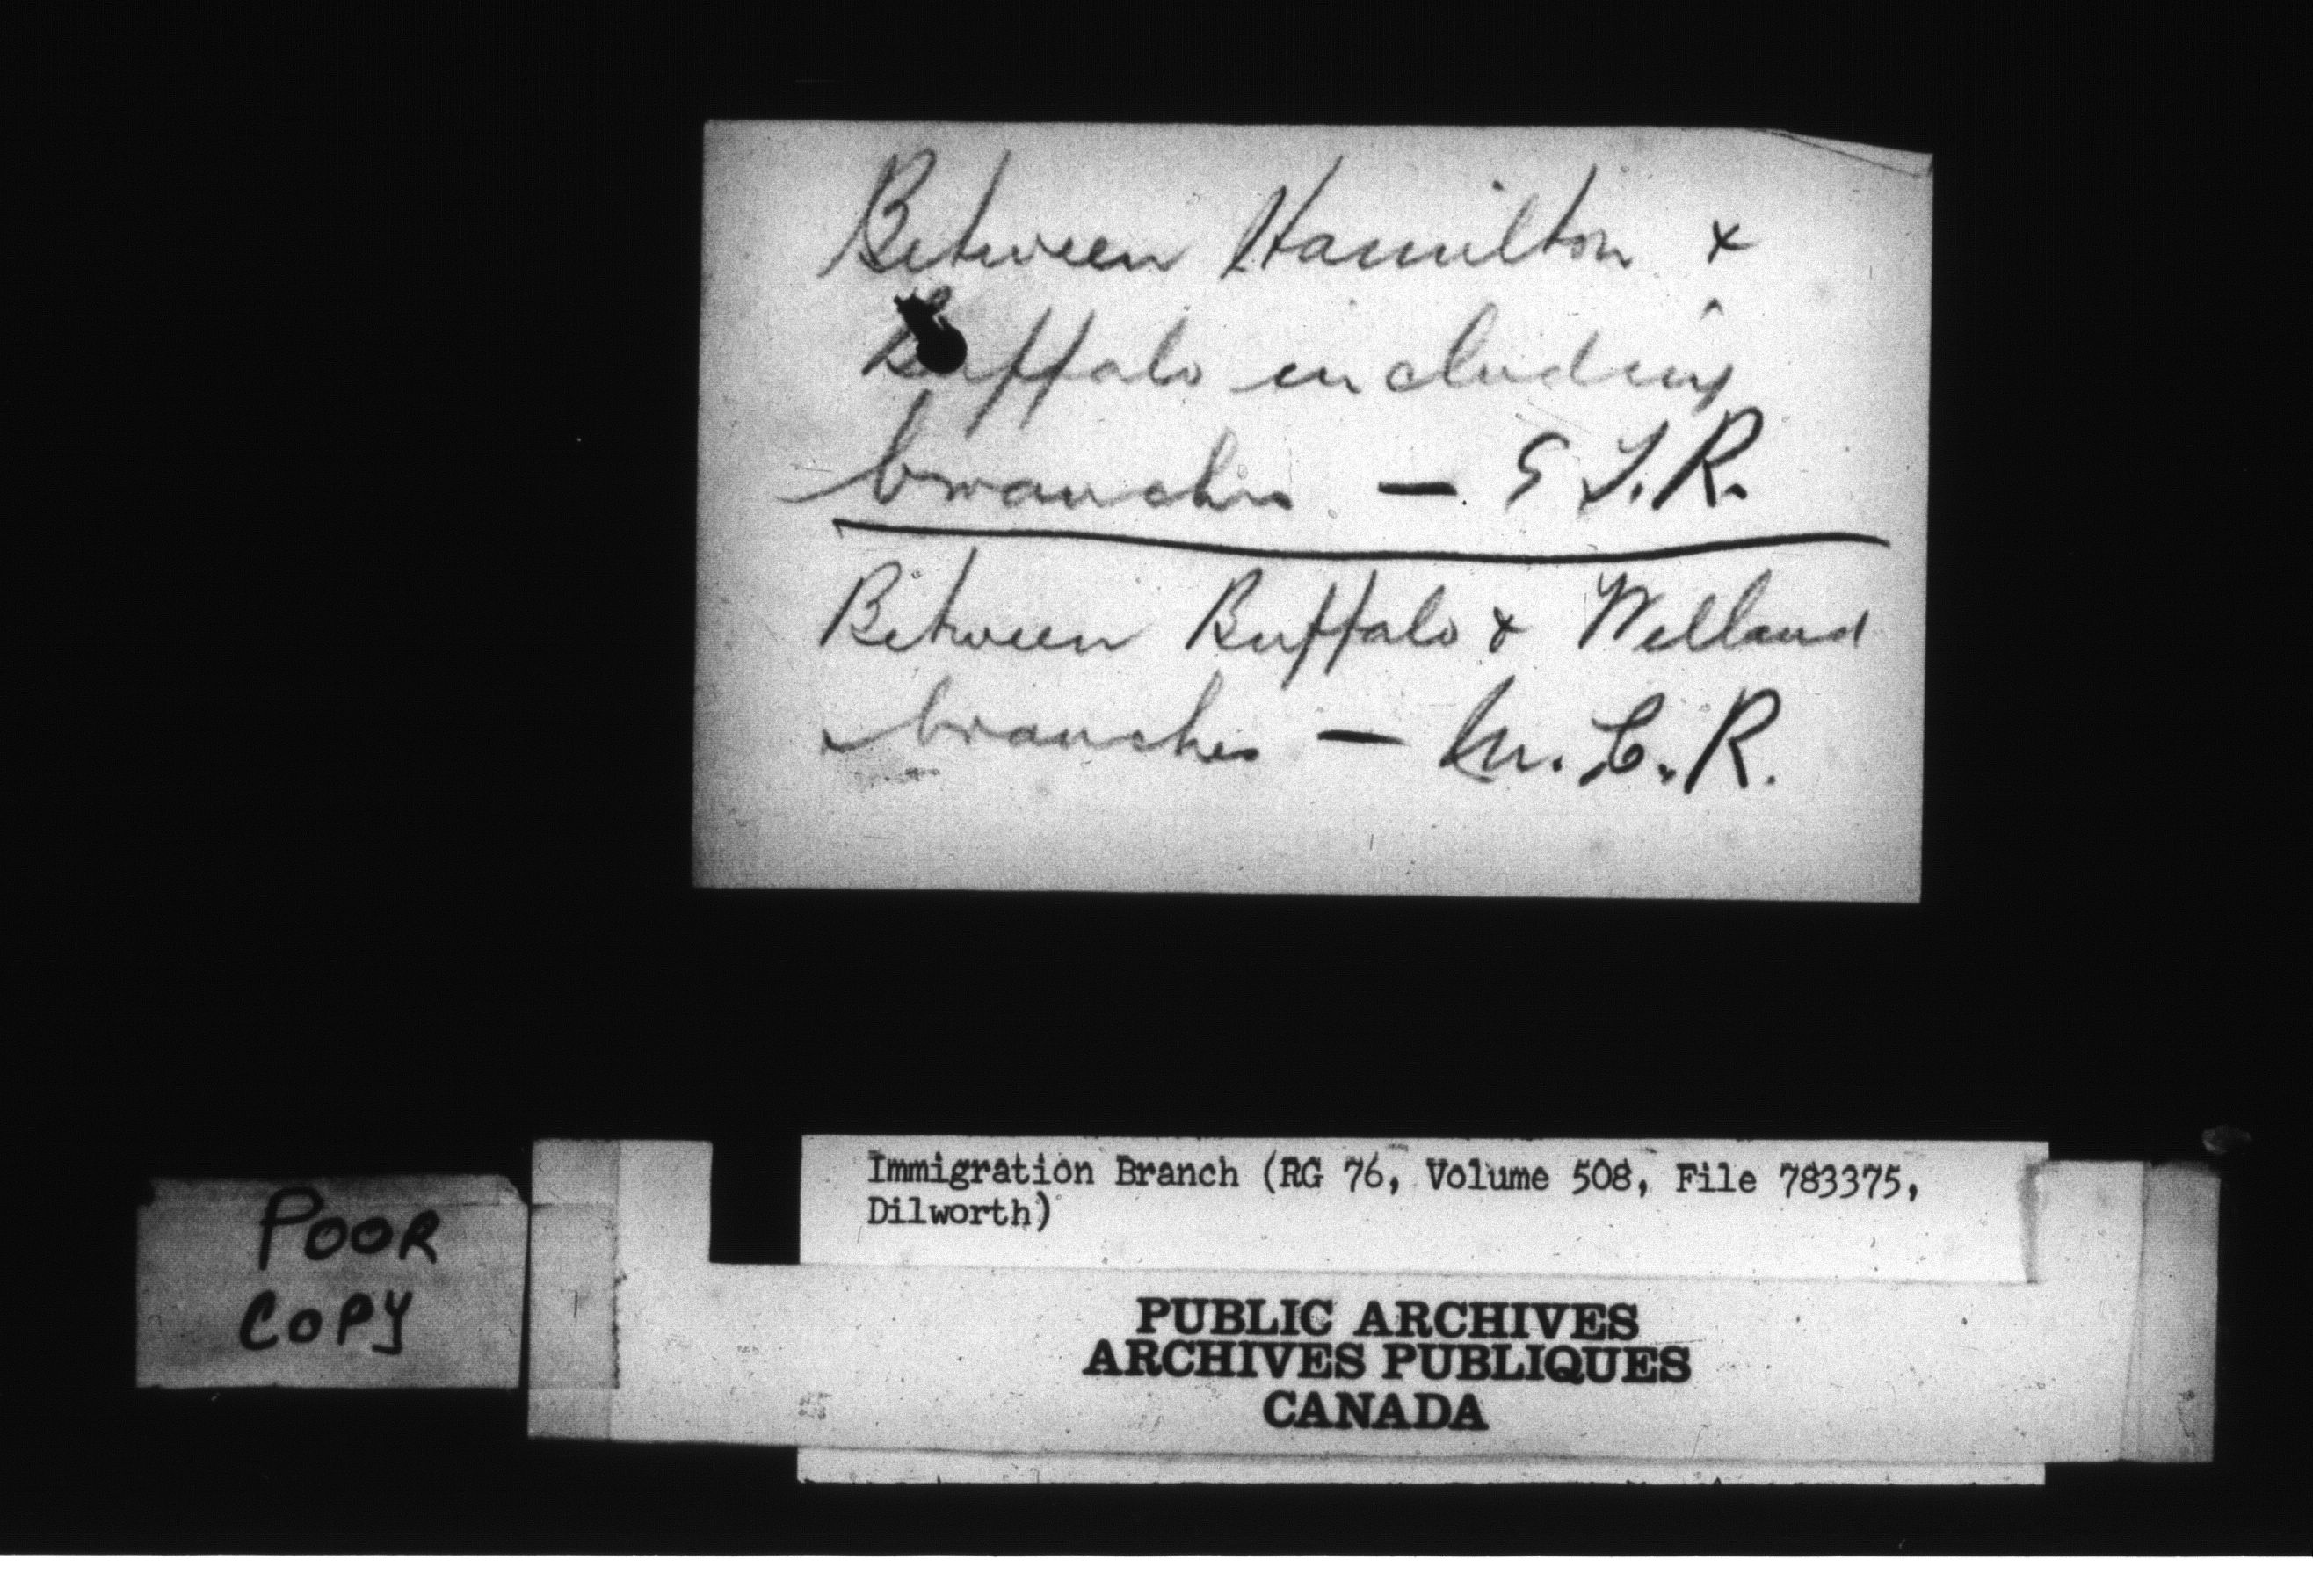 Between Hamilton &
Buffalo including
branches — G T.R.
Between Buffalo & Welland
branches — M.C.R.
Immigration Branch (RG 76, Volume 508, File 783375,
Dilworth)
POOR
COPY
PUBLIC ARCHIVES
ARCHIVES PUBLIQUES
CANADA